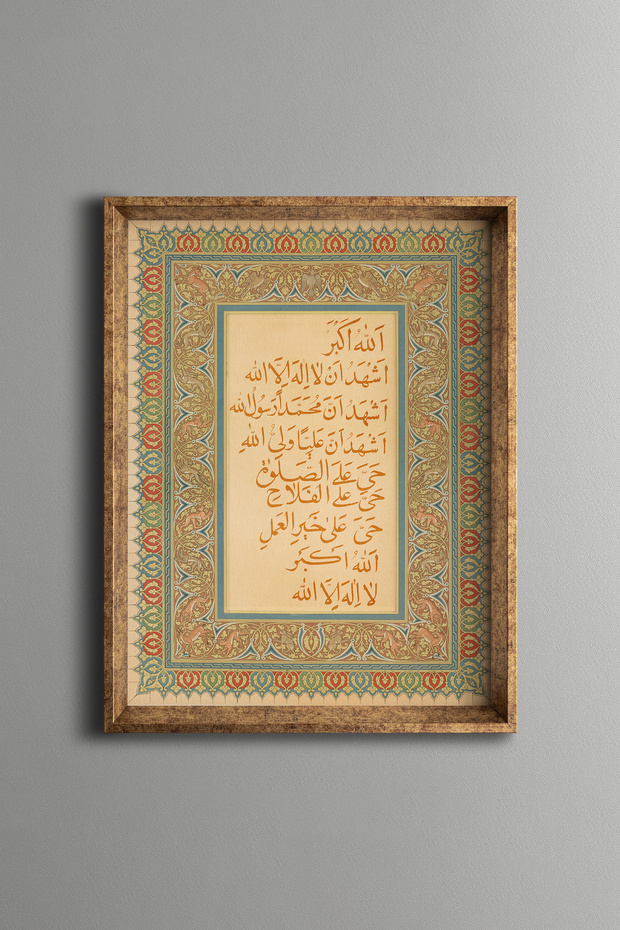 اَللهُ اَكْبَرْ
اَشْهَدُ اَنْ لا اِلهَ اِلَّا الله
اَشْهَدُ اَنَّ مُحَمَّداً رَسولُ الله
اَشْهَدُ اَنَّ عَلیًّا وَلیُ اللهِ
حَیَّ عَلَی الصَّلوة
حَیَّ عَلَی الفَلاح
حَیَّ عَلیٰ خَیرِ العَملِ
اَللهُ اکبَر
لا اِلهَ اِلَّا الله